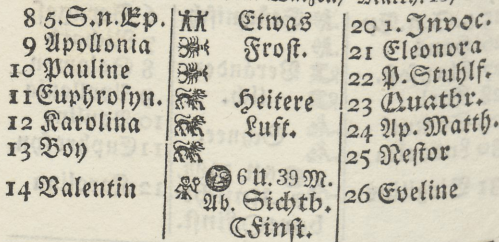 8 5. S. n. Ep. Etwas 20 1. Invoc.
9 Apollonia Frost. 21 Eleonora
10 Pauline 22 P. Stuhlf.
11 Euphrosyn. Heitere 23 Quatbr.
12 Karolina Luft. 24 Ap. Matth.
13 Boy 25 Nestor
14 Valentin 6 U. 39 M. 26 Eveline
Ab. Sichtb.
☾Finst.